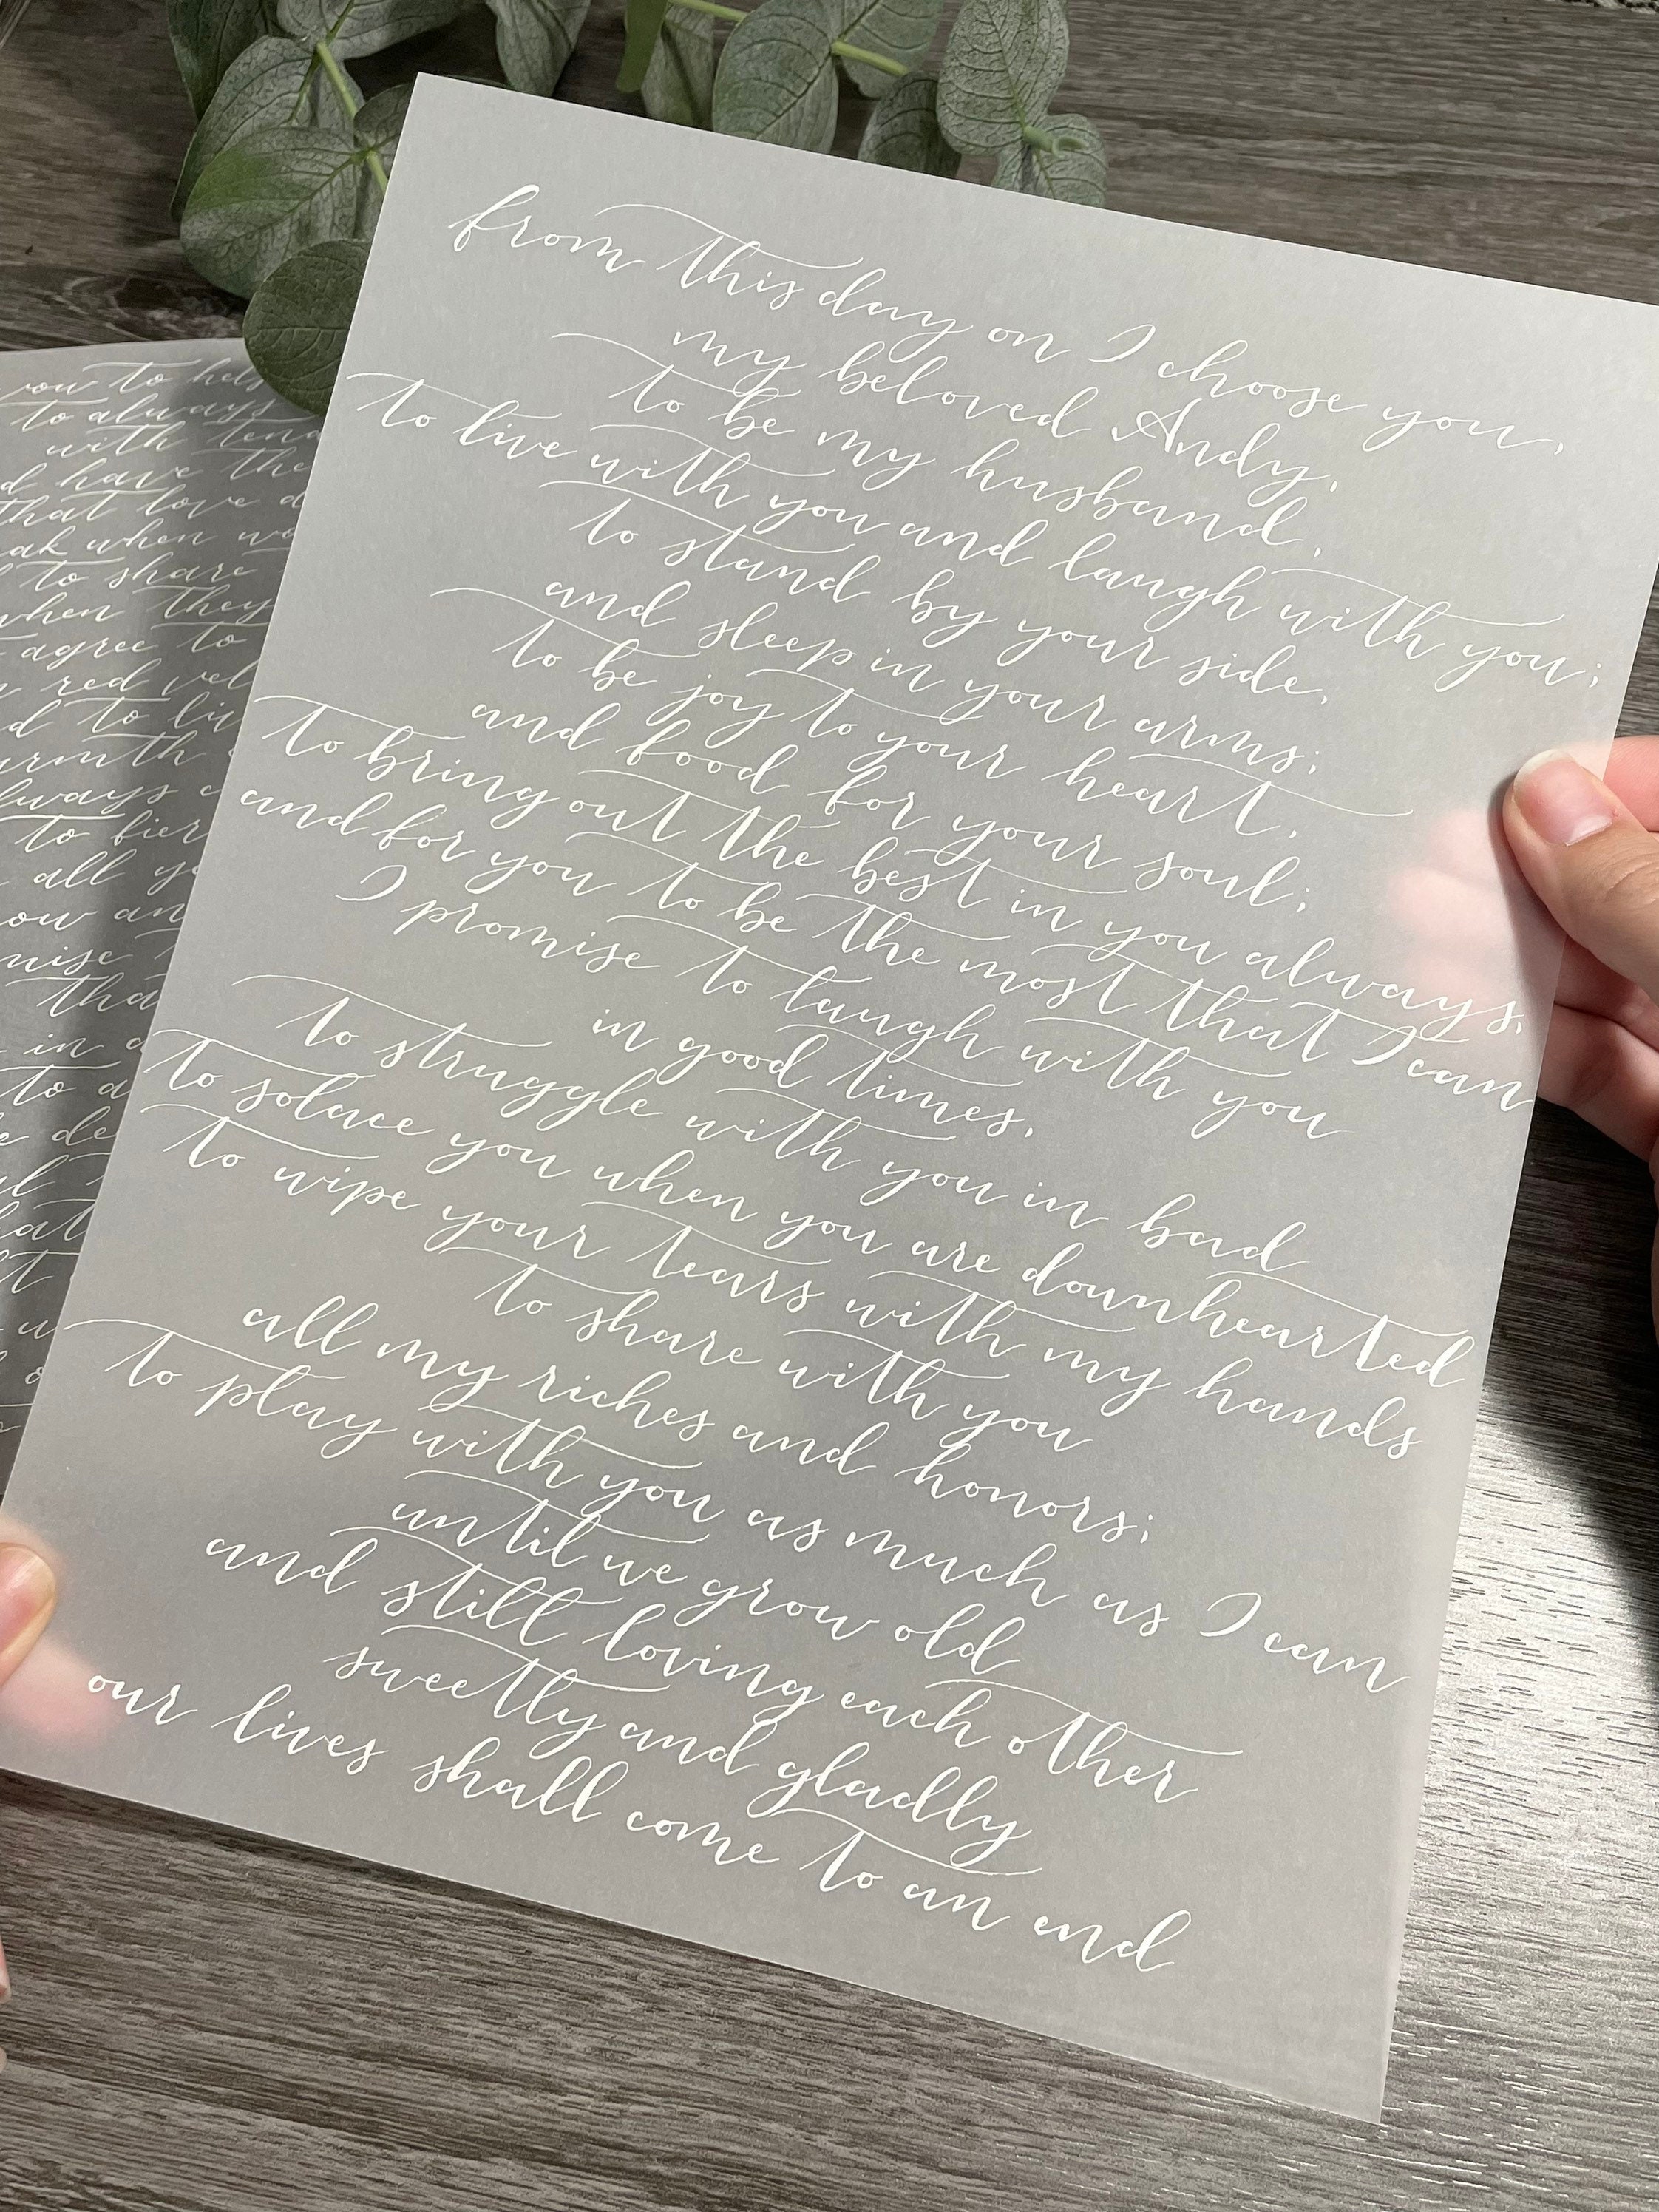 from this day on I choose you,
my beloved Andy,
to be my husband,
to live with you and laugh with you;
to stand by your side,
and sleep in your arms;
to be joy to your heart,
and food for your soul;
to bring out the best in you always,
and for you to be the most that I can
I promise to laugh with you
in good times,
to struggle with you in bad
to solace you when you are downhearted
to wipe your tears with my hands
to share with you
all my riches and honors;
to play with you as much as I can
until we grow old
and still loving each other
sweetly and gladly
our lives shall come to an end
to
to always
with
have the
that love
when
to share
when they
agree to
red
to
always
to
all
in
to